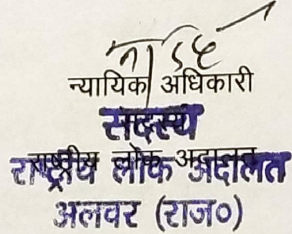 न्यायिक अधिकारी
सदस्य
राष्ट्रीय लोक अदालत
राष्ट्रीय लोक अदालत
अलवर (राज०)